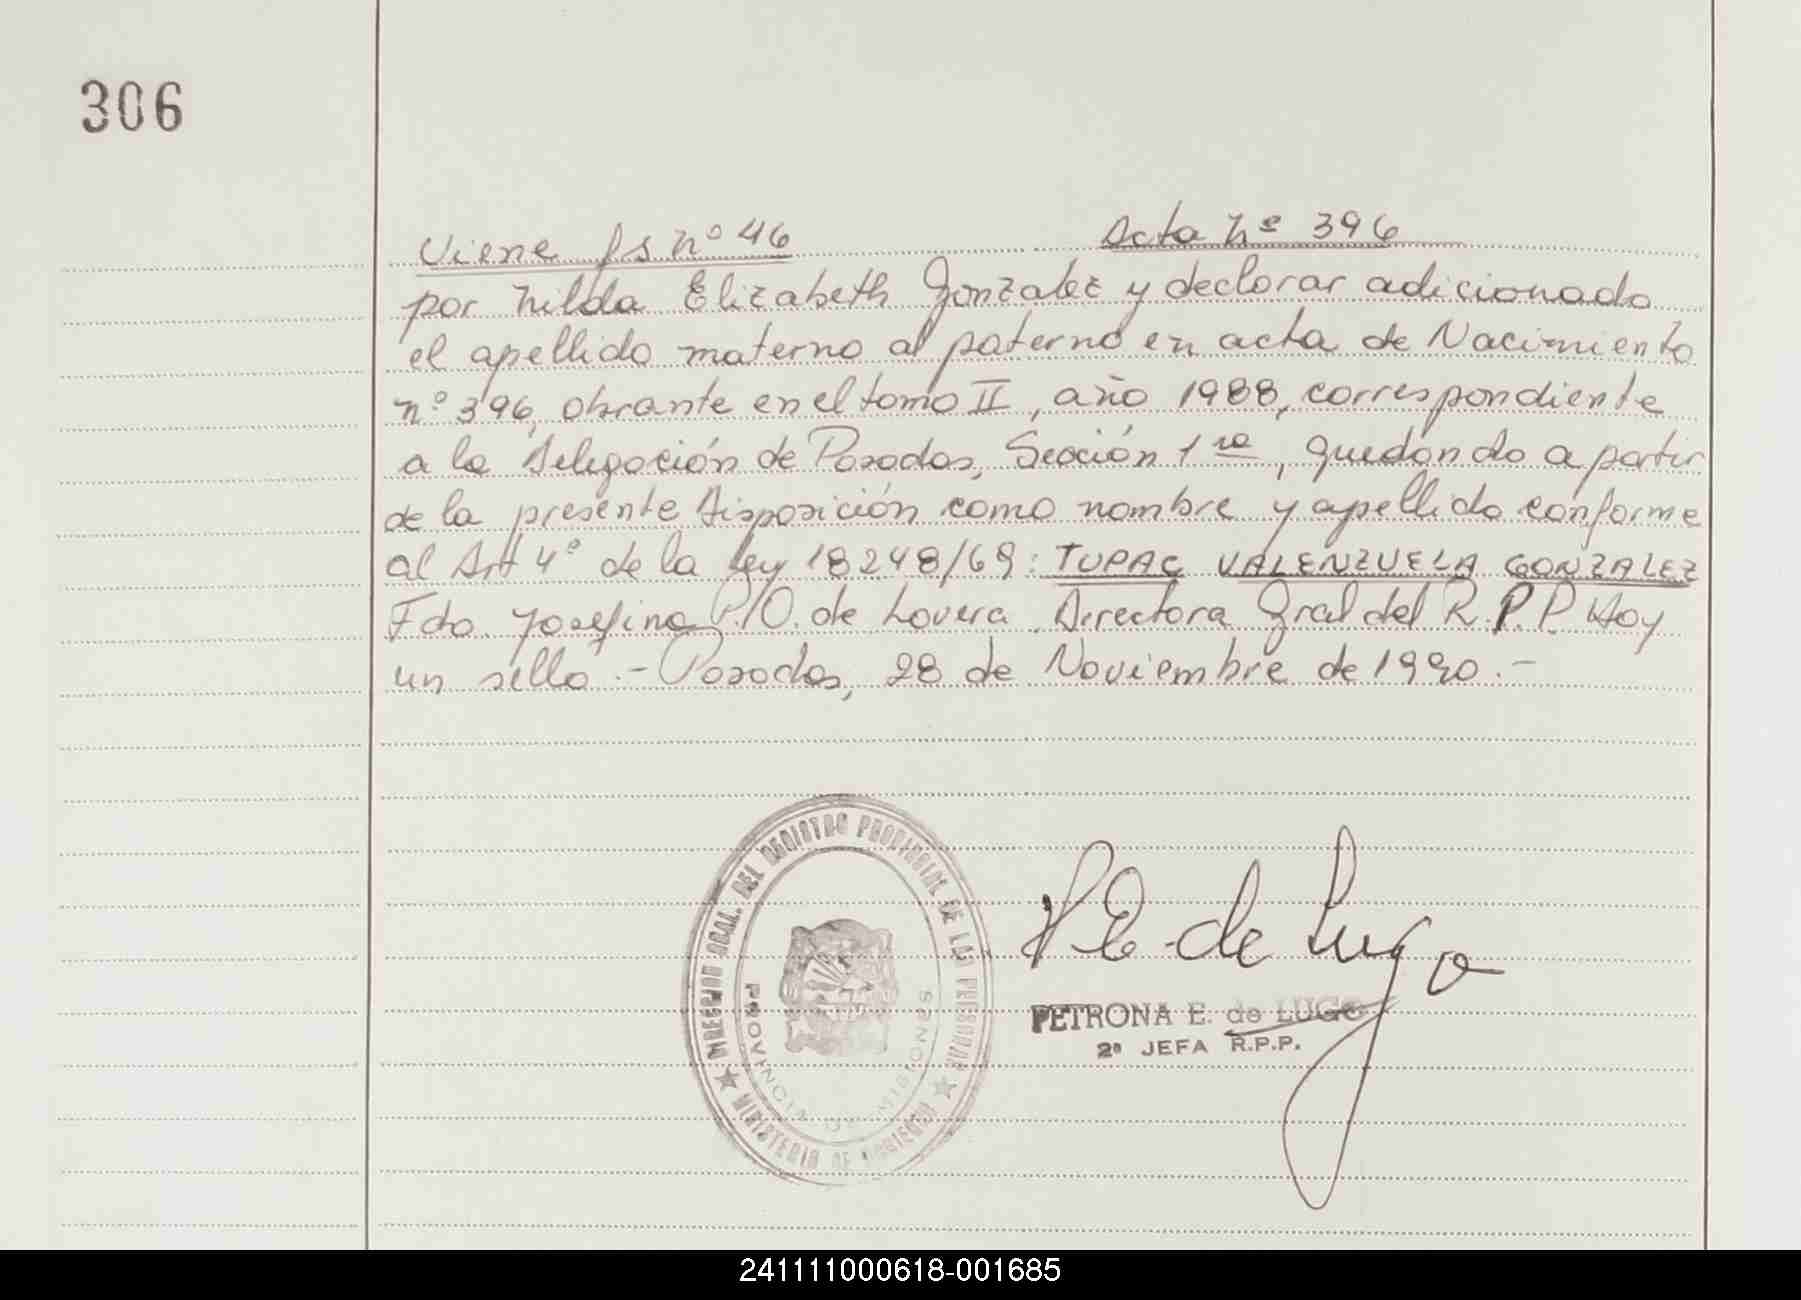 306
Viene fs nº 46 Acta Nº 396
por Nilda Elizabeth Gonzalez y declarar adicionado
el apellido materno al paterno en acta de Nacimiento
nº 396, obrante en el tomo II, año 1988, correspondiente
a la Delegación de Posadas, Sección 1ra, quedando a partir
de la presente Disposición como nombre y apellido conforme
al Art 4º de la ley 18248/69: TUPAC VALENZUELA GONZALEZ
Fdo. Josefina P. O. de Lovera. Directora Gral del R.P.P. Hay
un sello.- Posadas, 28 de Noviembre de 1990.-
DIRECCION GRAL. DEL REGISTRO PROVINCIAL DE LAS PERSONAS
PROVINCIA DE MISIONES
MINISTERIO DE GOBIERNO
P E de Lugo
PETRONA E. de LUGO
2ª JEFA R.P.P.
241111000618-001685